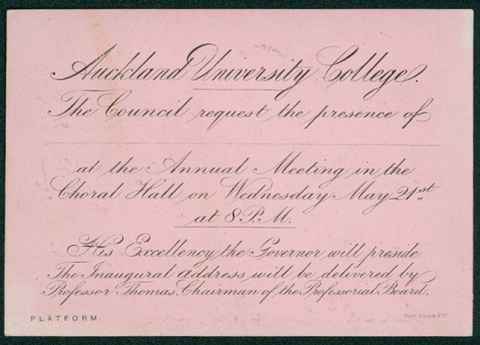 Auckland University College.
The Council request the presence of
at the Annual Meeting in the
Choral Hall on Wednesday May 21st
at 8 P.M.
His Excellency the Governor will preside
The Inaugural address will be delivered by
Professor Thomas, Chairman of the Professorial Board.
PLATFORM.